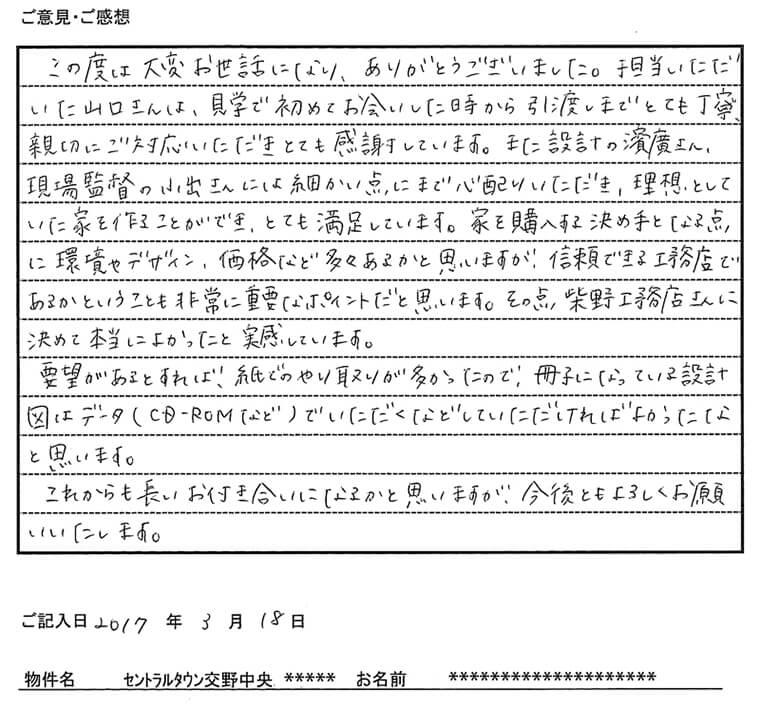 ご意見・ご感想
この度は大変お世話になり、ありがとうございました。担当いただ
いた山口さんは、見学で初めてお会いした時から引渡しまでとても丁寧、
親切にご対応いただきとても感謝しています。また設計の濱廣さん、
現場監督の小出さんには細かい点にまで心配りいただき、理想として
いた家を作ることができ、とても満足しています。家を購入する決め手となる点
に環境やデザイン、価格など多々あるかと思いますが、信頼できる工務店で
あるかということも非常に重要なポイントだと思います。その点、柴野工務店さんに
決めて本当によかったこと実感しています。
要望があるとすれば、紙でのやり取りが多かったので、冊子になっている設計
図はデータ(CD-ROMなど)でいただくなどしていただければよかったな
と思います。
これからも長いお付き合いになるかと思いますが、今後ともよろしくお願
いいたします。
ご記入日 2017 年 3 月 18 日
物件名 セントラルタウン交野中央 ***** お名前 ********************